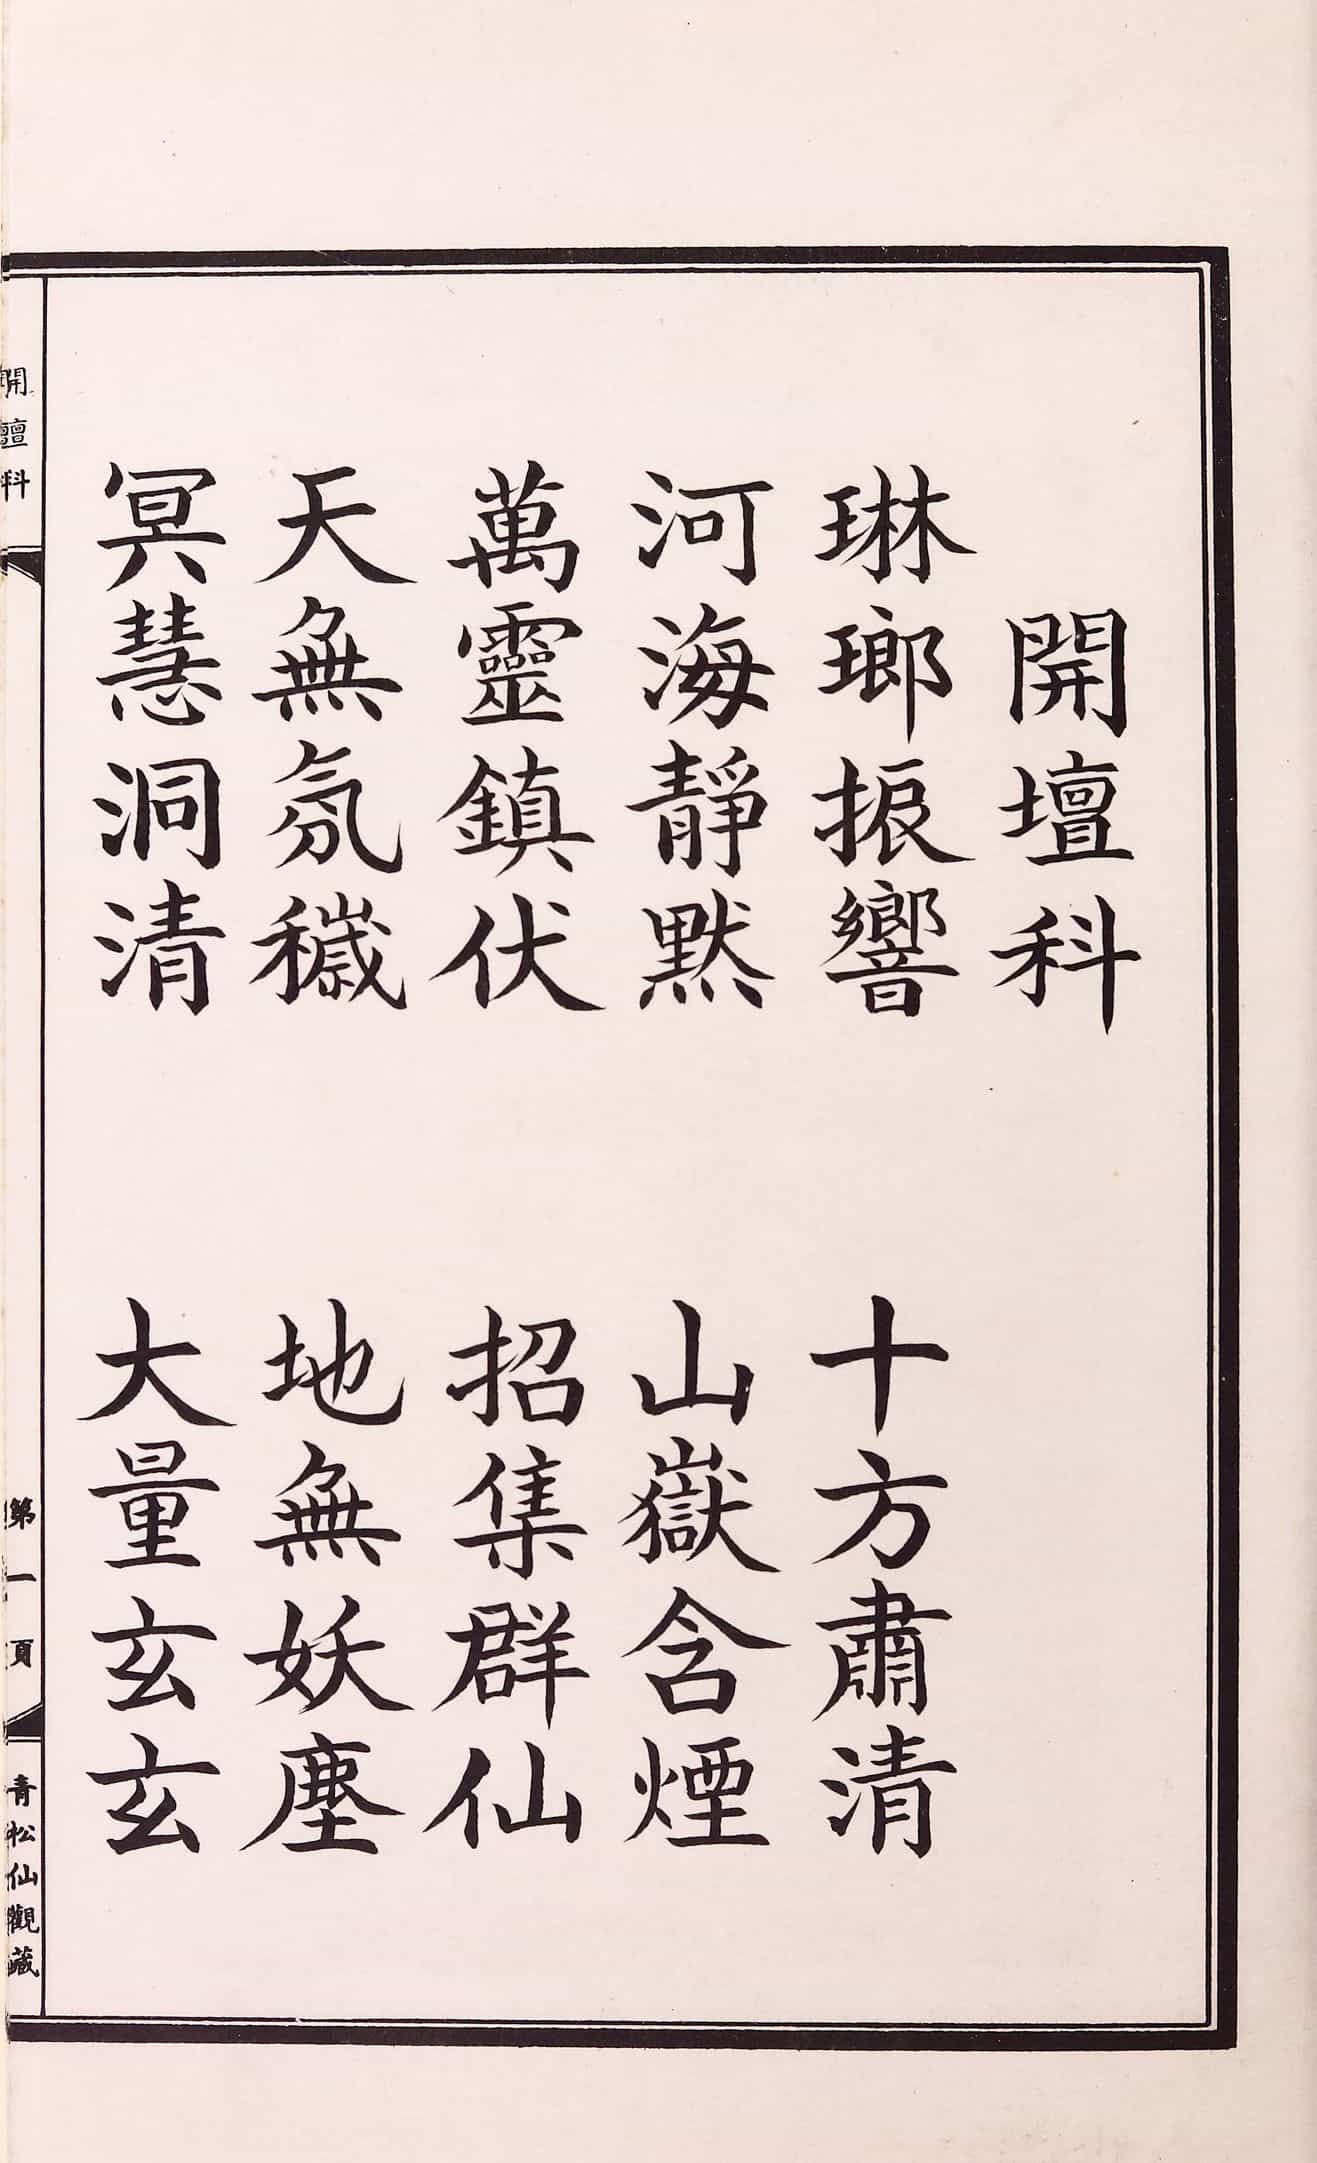 開壇科
琳瑯振響 十方肅清
河海靜默 山嶽含煙
萬靈鎮伏 招集群仙
天無氛穢 地無妖塵
冥慧洞清 大量玄玄
開壇科
第一頁
青松仙觀藏